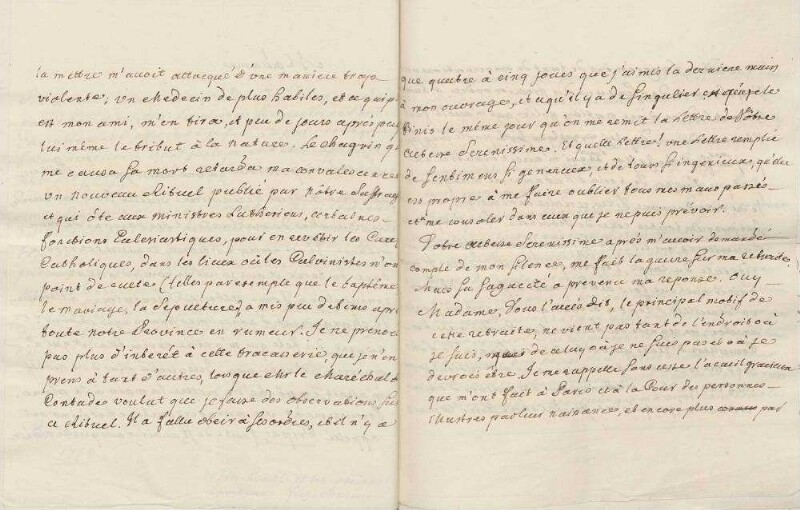 la mettre m'avoit attacqué d'une maniere trop
violente; un Medecin de plus habiles, et ce qui
est mon ami, m'en tira, et peu de jours après
lui même le tribut à la nature. Le chagrin que
me causa sa mort retarda ma convalescence
un nouveau Rituel publié par nôtre Suffrag
et qui ôte aux ministres Lutheriens, certaines
fonctions Eclesiastiques, pour en revêtir les Curés
Catholiques, dans les lieux où les Calvinistes n'on
point de culte (telles par exemple que le baptême
le mariage, la sepulture) a mis peu de tems apr
toute notre Province en rumeur. Je ne prenois
pas plus d'interêt à cette tracasserie que je n'en
prens à tant d'autres, lorsque Mr. le Maréchal de
Contades voulut que je fasse des observations sur
ce Rituel. Il a fallu obeir à ses ordres, et il n'y a
que quatre à cinq jours que j'ai mis la derniere main
à mon ouvrage, et ce qu'il y a de singulier est que je le
finis le même jour qu'on me remit la Lettre de Vôtre
Altesse Serenissime. Et quelle Lettre! une Lettre remplie
de sentimens si genereux, et de tours si ingenieux,
est propre à me faire oublier tous mes maux passés
et à me consoler dans ceux que je ne puis prévoir.
Votre Altesse Serenissime après m'avoir demandé
compte de mon silence, me fait la guerre sur ma retraite.
Mais sa sagacité a prevenu ma reponse. Ouy
Madame, Vous l'avés dit, le principal motif de
cette retraite, ne vient pas tant de l'endroit où
je suis, que de celuy où je ne suis pas et où je
devrois être. Je me rappelle sans cesse l'acueil gracieux
que m'ont fait à Paris et à la Cour des personnes
illustres par leur naissance, et encore plus connus par